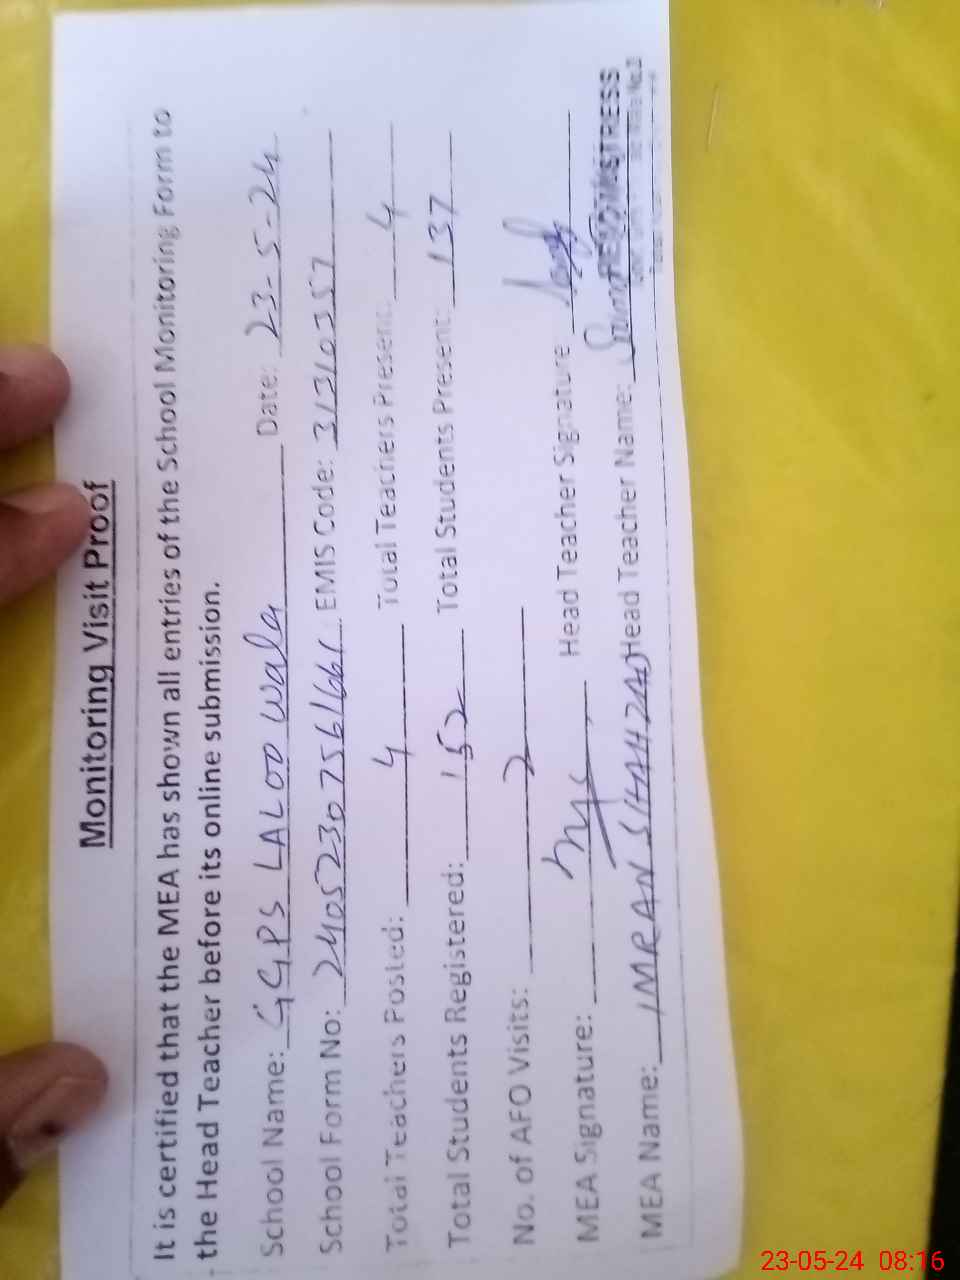 Monitoring Visit Proof
It is certified that the MEA has shown all entries of the School Monitoring Form to
the Head Teacher before its online submission.
School Name: GGPS LALOO Wala Date: 23-5-24
School Form No: EMIS Code: 31310357
Total Teachers Posted: 4 Total Teachers Present: 4
Total Students Registered: 152 Total Students Present: 137
No. of AFO Visits: 2
MEA Signature: Head Teacher Signature
MEA Name: IMRAN SHAHZAD Head Teacher Name:
HEADMISTRESS
23-05-24 08:16